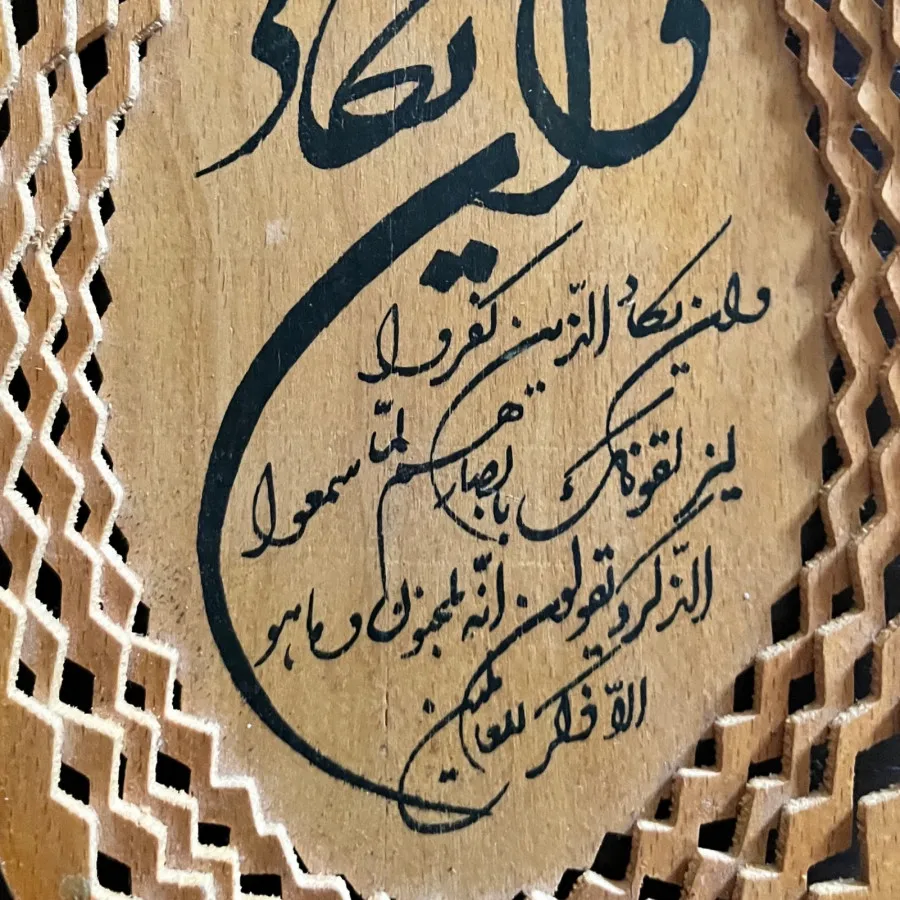 وان یکاد
وان یکاد الّذین کفروا
لیزلقونک بابصارهم لمّا سمعوا
الذّکر و یقولون انّه لمجنون و ما هو
الاّ ذکر للعالمین